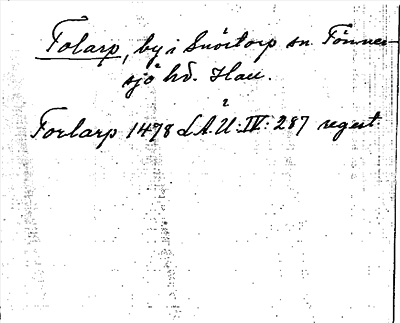 Tolarp, by i Snöstorp sn. Tönner-
sjö hd. Hall.
Torlarp 1478 LÅU:IV:287 regest